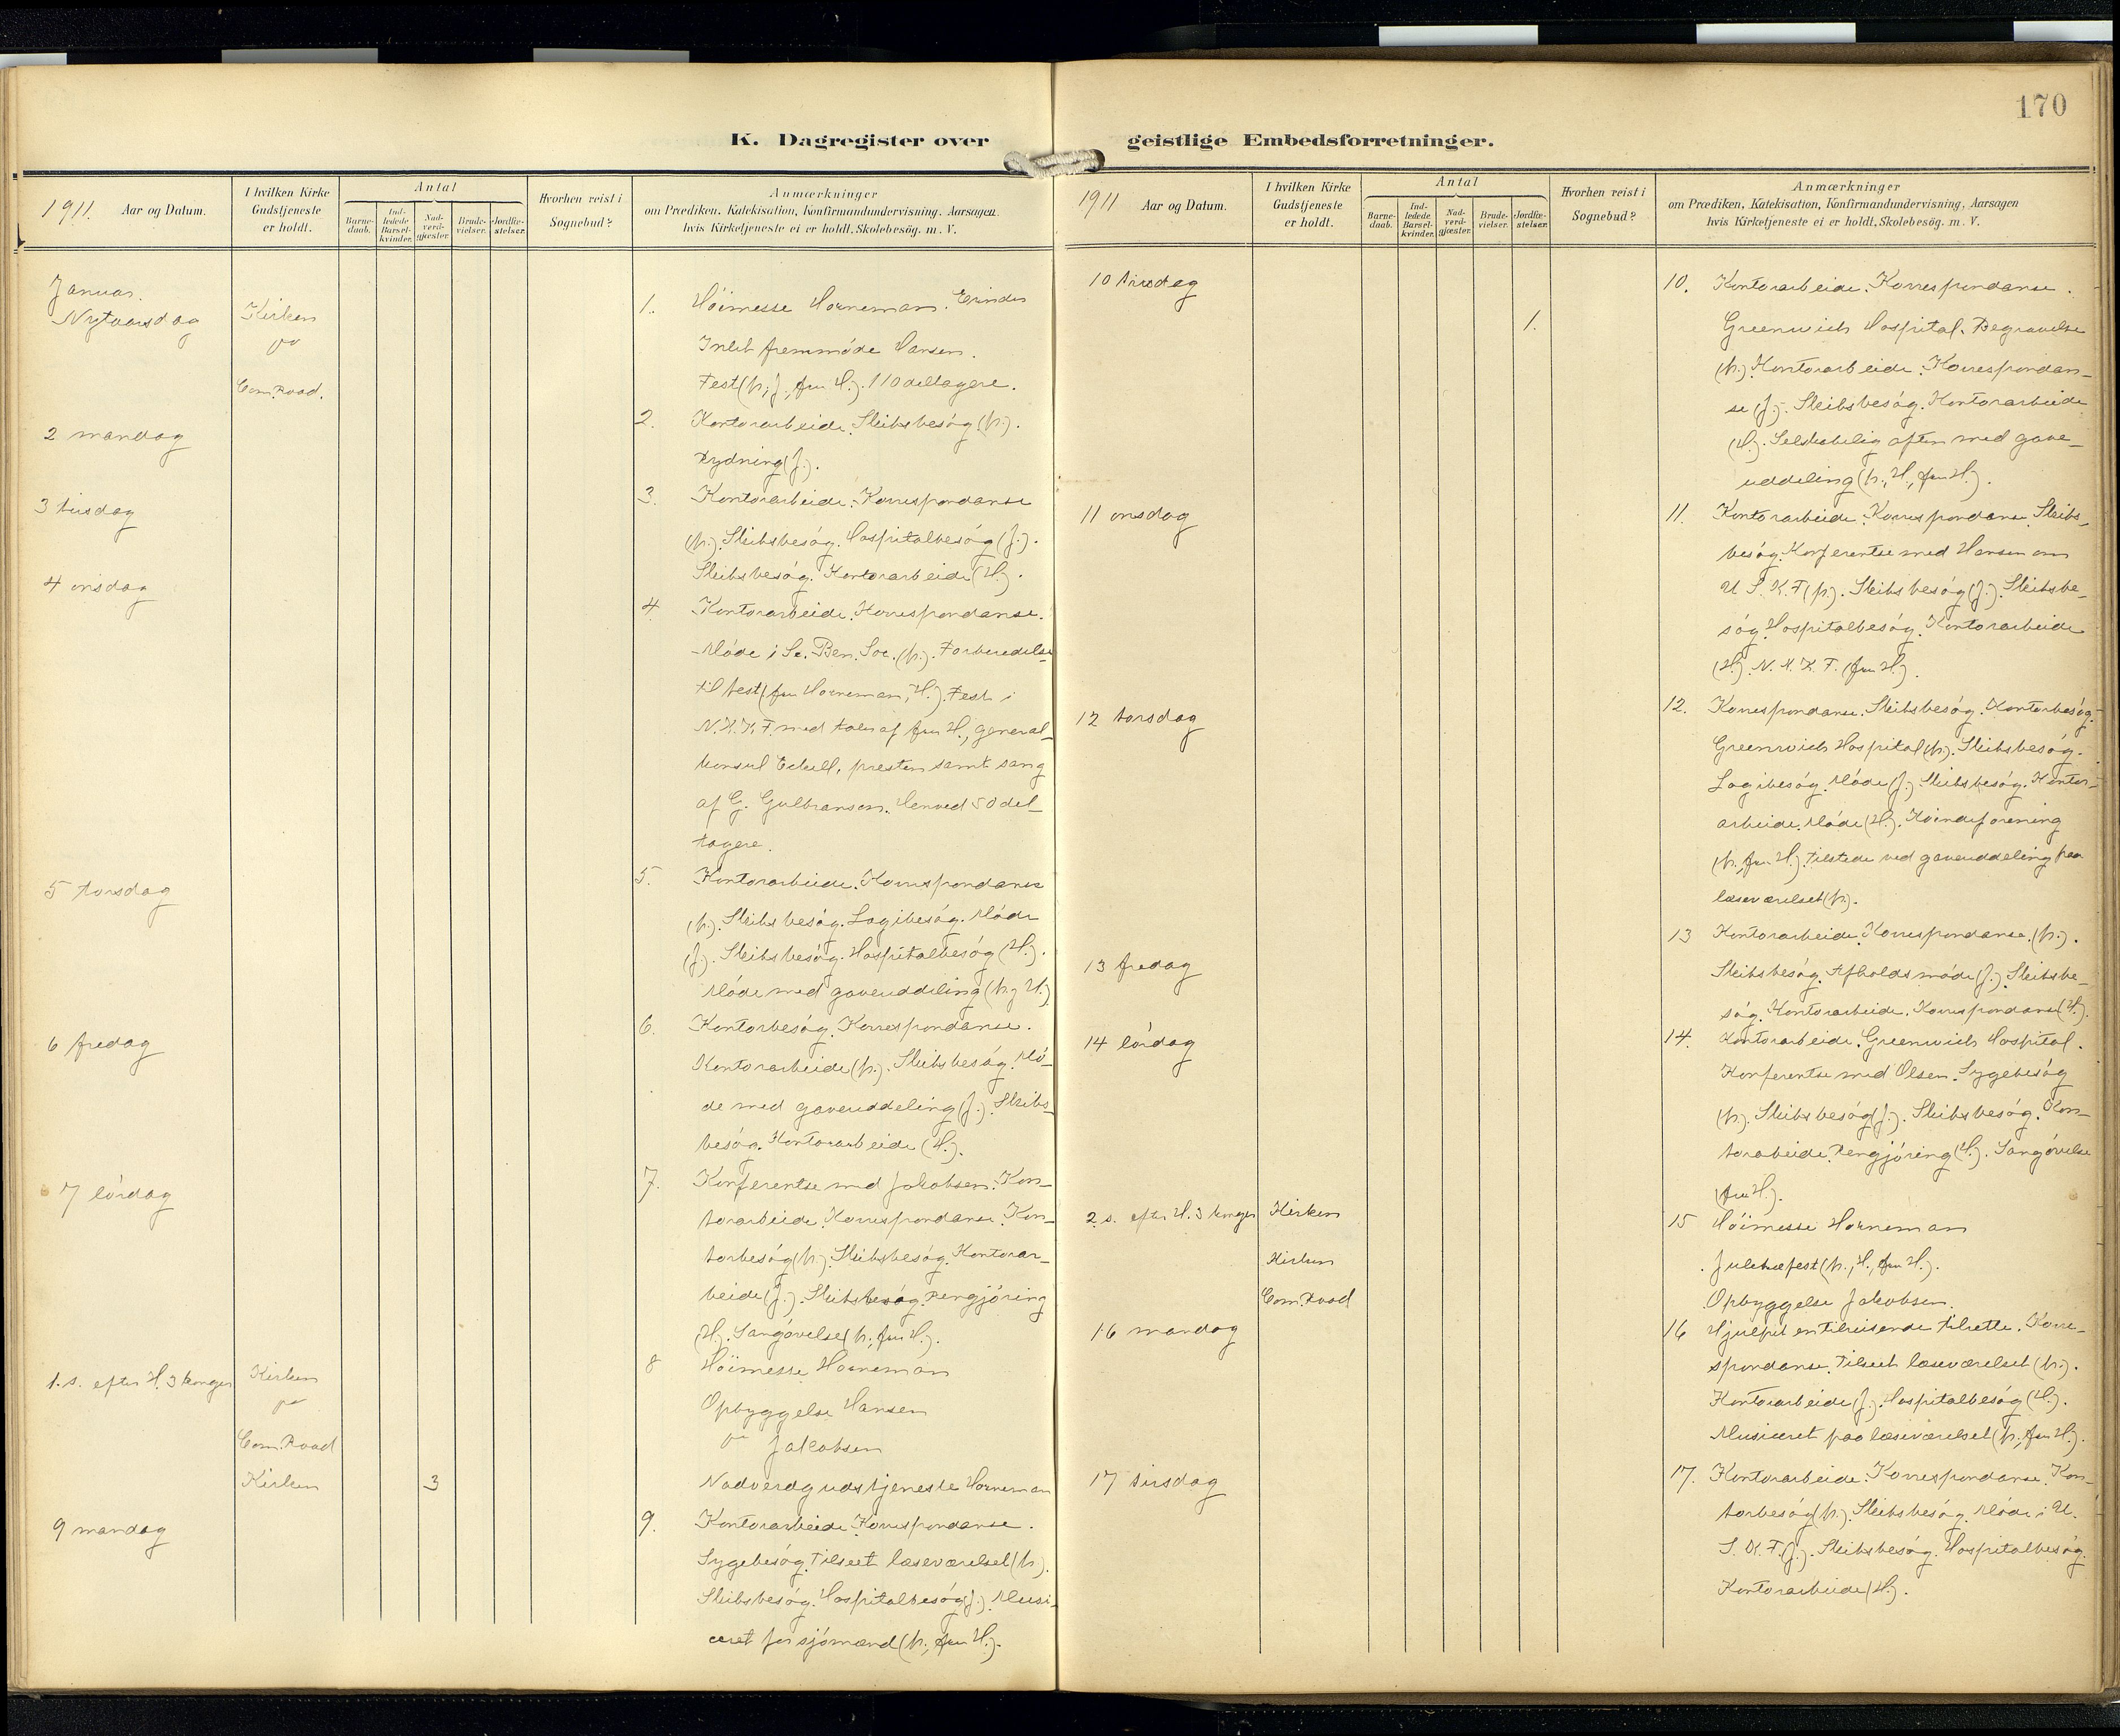 170
K. Dagregister over geistlige Embedsforretninger.
1911. Aar og Datum.
I hvilken Kirke Gudstjeneste er holdt.
Antal
Barnedaab.
Indledede Barselkvinder.
Nadverdgjæster.
Brudevielser.
Jordfæstelser.
Hvorhen reist i Sognebud?
Anmærkninger
om Prædiken, Katekisation, Konfirmandundervisning, Aarsagen
hvis Kirketjeneste ei er holdt, Skolebesøg. m. V.
Januar.
Nytaarsdag Kirken 1. Höimesse Horneman.
Fremmöde Hansen.
Com. Road. Fest (p., J., fru H.). 110 deltagere.
2 mandag 2. Kontorarbeide. Skibsbesög (p.).
Rydning (J.).
3 tirsdag 3. Kontorarbeide. Korrespondanse
(p.). Skibsbesög. Hospitalbesög (J.).
Skibsbesög. Kontorarbeide (H.).
4 onsdag 4. Kontorarbeide. Korrespondanse.
Möde i Sc. Ben. Soc. (p.). Forberedelse
til fest (fru Horneman, H.). Fest i
N.K.K.F. med taler af fru H., general-
konsul Eckell, presten samt sang
af G. Gulbranson. Henved 50 del-
tagere.
5 torsdag 5. Kontorarbeide. Korrespondanse
(p.). Skibsbesög. Logibesög. Möde
(J.). Skibsbesög. Hospitalbesög (H.).
Möde med gaveuddeling (p., H.)
6 fredag 6. Kontorbesög. Korrespondanse.
Kontorarbeide (p.). Skibsbesög. Mö-
de med gaveuddeling (J.). Skibs-
besög. Kontorarbeide (H.).
7 lördag 7. Konferentse med Jakobsen. Kon-
torarbeide. Korrespondanse. Kon-
torbesög (p.). Skibsbesög. Kontorar-
beide (J.). Skibsbesög. Rengjöring
(H.). Sangövelse (p., fru H.).
1. s. efter H. 3 konger Kirken 8 Höimesse Horneman
Opbyggelse Hansen
Com. Road Jakobsen
Kirken 3 Nadverdgudstjeneste Horneman
9 mandag 9. Kontorarbeide. Korrespondanse.
Sygebesög. Tilseet læseværelset (p.).
Skibsbesög. Hospitalbesög (J.). Musi-
ceret for sjömænd (p., fru H.).
1911 Aar og Datum.
I hvilken Kirke Gudstjeneste er holdt.
Antal
Barnedaab.
Indledede Barselkvinder.
Nadverdgjæster.
Brudevielser.
Jordfæstelser.
Hvorhen reist i Sognebud?
Anmærkninger
om Prædiken, Katekisation, Konfirmandundervisning, Aarsagen
hvis Kirketjeneste ei er holdt, Skolebesøg. m. V.
10 tirsdag 10. Kontorarbeide. Korrespondanse.
1. Greenwich Hospital. Begravelse
(p.). Kontorarbeide. Korrespondan-
se (J.). Skibsbesög. Kontorarbeide
(H.). Selskabelig aften med gave-
uddeling (p., H., fru H.).
11 onsdag 11. Kontorarbeide. Korrespondanse. Skibs-
besög. Konferentse med Hansen om
U.S.K.F (p.). Skibsbesög (J.). Skibsbe-
sög. Hospitalbesög. Kontorarbeide
(H.). N.K.K.F. (fru H.).
12 torsdag 12. Korrespondanse. Skibsbesög. Kontorbesög.
Greenwich Hospital (p.). Skibsbesög.
Logibesög. Möde (J.). Skibsbesög. Kontor-
arbeide. Möde (H.). Kvindeforening
(p., fru H.). Tilstede ved gaveuddeling paa
læseværelset (p.).
13 fredag 13 Kontorarbeide. Korrespondanse. (p.).
Skibsbesög. Afholdsmöde (J.). Skibsbe-
sög. Kontorarbeide. Korrespondanse (H.).
14 lördag 14. Kontorarbeide. Greenwich Hospital.
Konferentse med Olsen. Sygebesög
(p.). Skibsbesög (J.). Skibsbesög. Kon-
torarbeide. Rengjöring (H.). Sangövelse
(fru H.).
2. s. efter H. 3 konger Kirken 15 Höimesse Horneman
Kirken Juletræfest (p., H., fru H.).
Com. Road Opbyggelse Jakobsen.
16 mandag 16 Hjulpet en tilreisende tilrette. Korre-
spondanse. Tilseet læseværelset (p.).
Kontorarbeide (J.). Hospitalbesög (H.).
Musiceret paa læseværelset (p., fru H.).
17 tirsdag 17. Kontorarbeide. Korrespondanse. Kon-
torbesög (p.). Skibsbesög. Möde i U.
S.K.F. (J.). Skibsbesög. Hospitalbesög.
Kontorarbeide (H.).